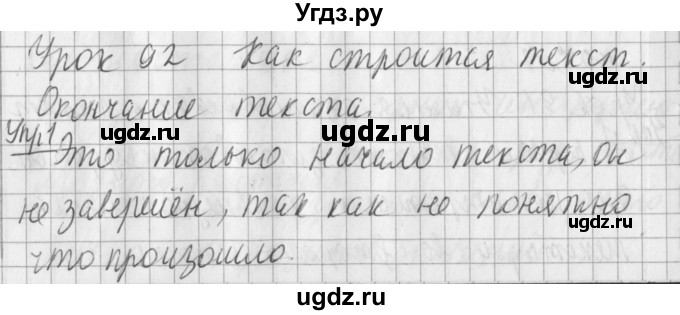 Угдз.ру
Урок 92 Как строится текст.
ugdz.ru ugdz.ru
Окончание текста.
Упр1 ugdz.ru ugdz.ru
Это только начало текста, он
не завершён, так как не понятно
ugdz.ru ugdz.ru
что произошло.
ugdz.ru